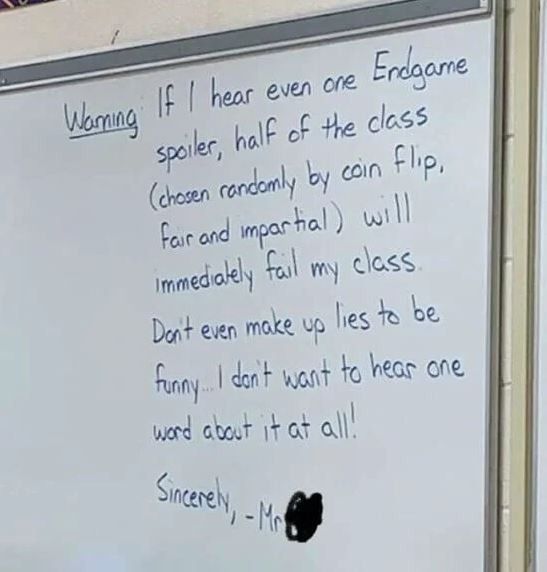 Warning: If I hear even one Endgame
spoiler, half of the class
(chosen randomly by coin flip,
fair and impartial) will
immediately fail my class.
Don't even make up lies to be
funny... I don't want to hear one
word about it at all!
Sincerely, -Mr